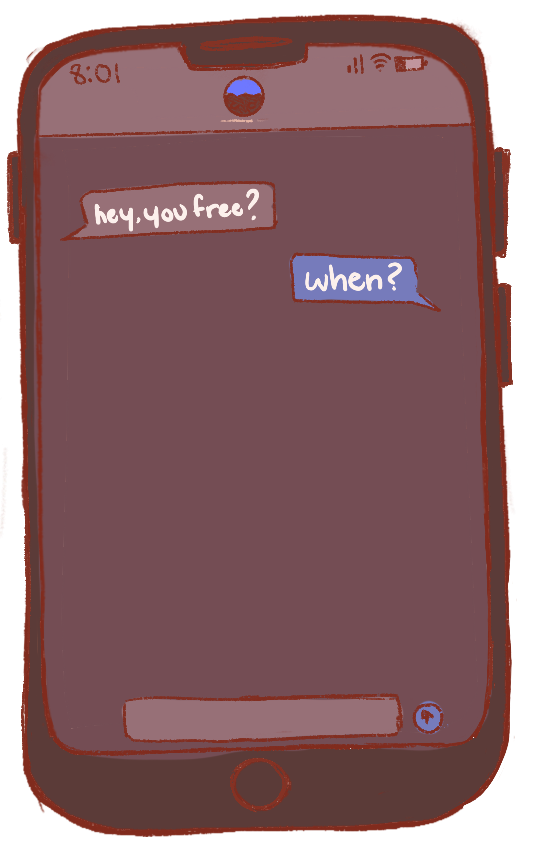 8:01
hey, you free?
when?